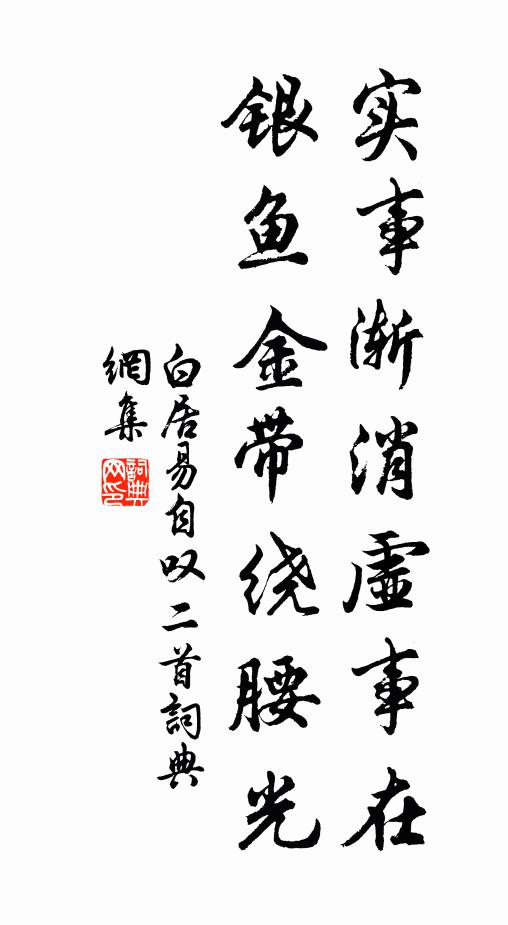 实事渐消虚事在
银鱼金带绕腰光
白居易自叹二首詞典
網集
詞典網印